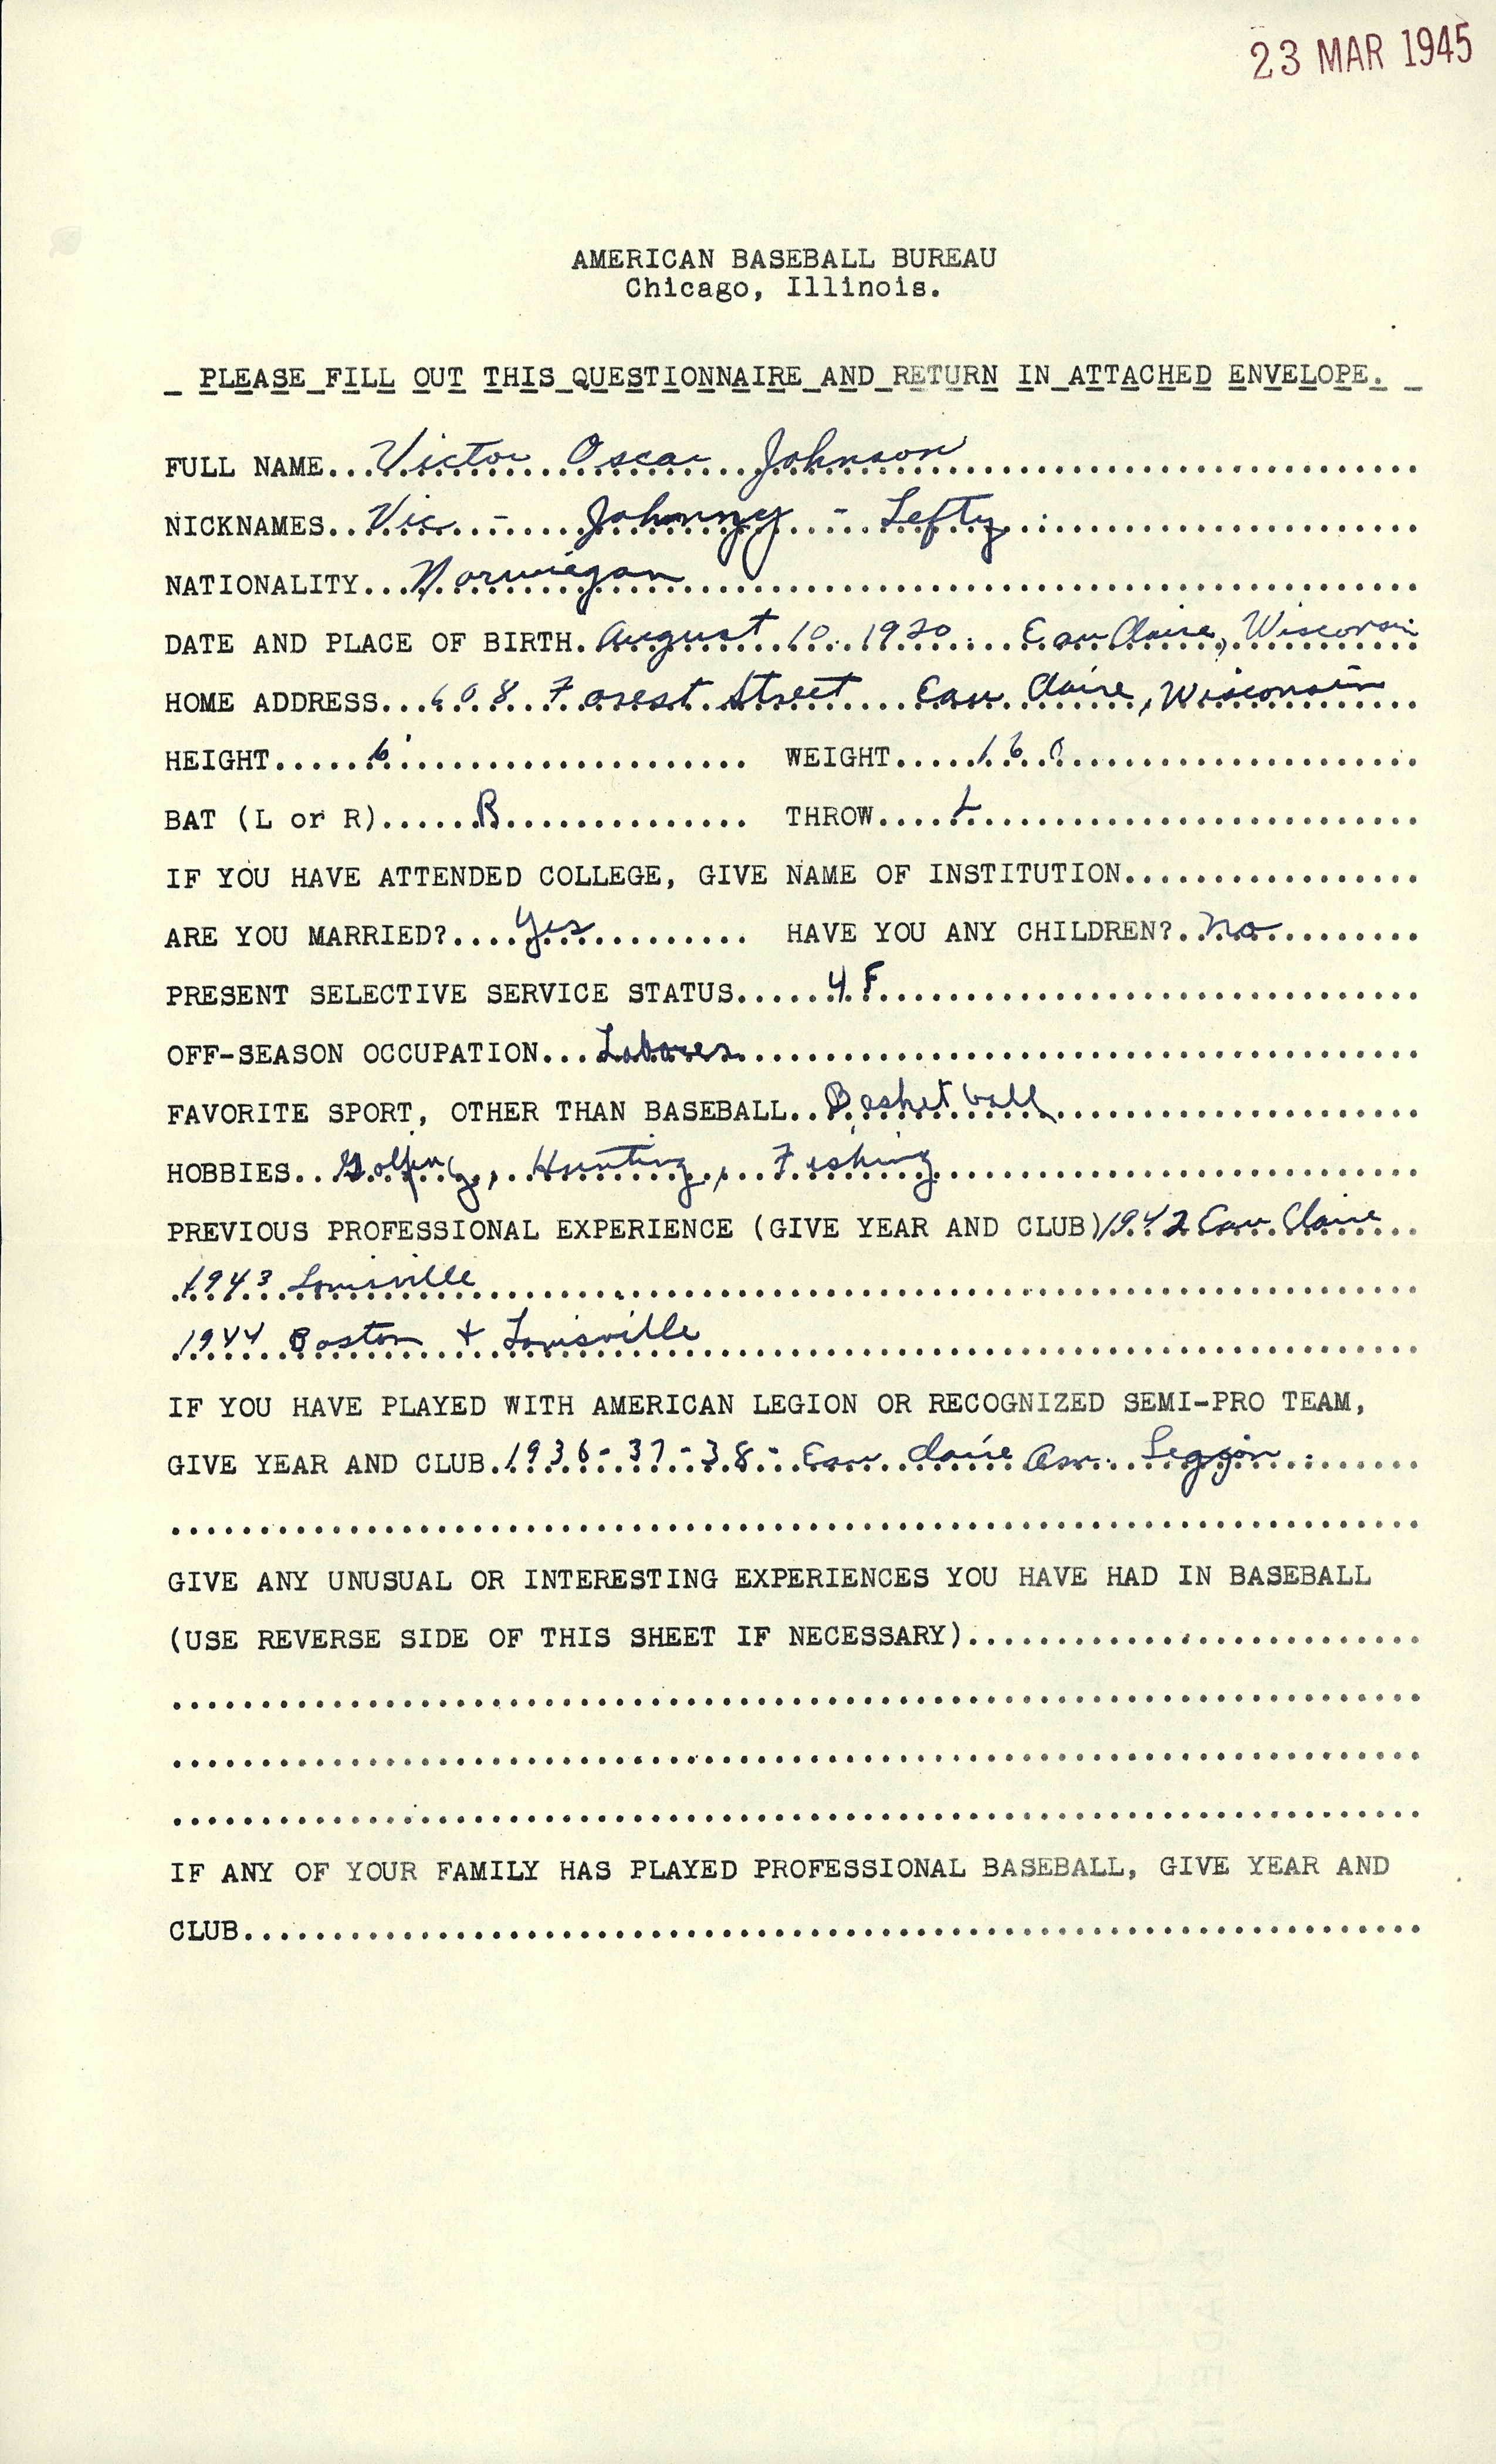 23 MAR 1945
AMERICAN BASEBALL BUREAU
Chicago, Illinois.
PLEASE FILL OUT THIS QUESTIONNAIRE AND RETURN IN ATTACHED ENVELOPE.
FULL NAME...Victor Oscar Johnson
NICKNAMES..Vic - Johnny - Lefty
NATIONALITY...Norwiegan
DATE AND PLACE OF BIRTH.August 10 1920 Eau Claire, Wisconsin
HOME ADDRESS...608 Forest Street Eau Claire, Wisconsin
HEIGHT.....6' WEIGHT.....160
BAT (L or R)......R THROW....L
IF YOU HAVE ATTENDED COLLEGE, GIVE NAME OF INSTITUTION.................
ARE YOU MARRIED?....Yes HAVE YOU ANY CHILDREN?..No
PRESENT SELECTIVE SERVICE STATUS......4F
OFF-SEASON OCCUPATION...Laborer
FAVORITE SPORT, OTHER THAN BASEBALL..Basket ball
HOBBIES..Golfing, Hunting, Fishing
PREVIOUS PROFESSIONAL EXPERIENCE (GIVE YEAR AND CLUB) 1942 Eau Claire
1943 Louisville
1944 Boston + Louisville
IF YOU HAVE PLAYED WITH AMERICAN LEGION OR RECOGNIZED SEMI-PRO TEAM,
GIVE YEAR AND CLUB.1936-37-38- Eau Claire Am. Leggion
GIVE ANY UNUSUAL OR INTERESTING EXPERIENCES YOU HAVE HAD IN BASEBALL
(USE REVERSE SIDE OF THIS SHEET IF NECESSARY)..........................
IF ANY OF YOUR FAMILY HAS PLAYED PROFESSIONAL BASEBALL, GIVE YEAR AND
CLUB...................................................................